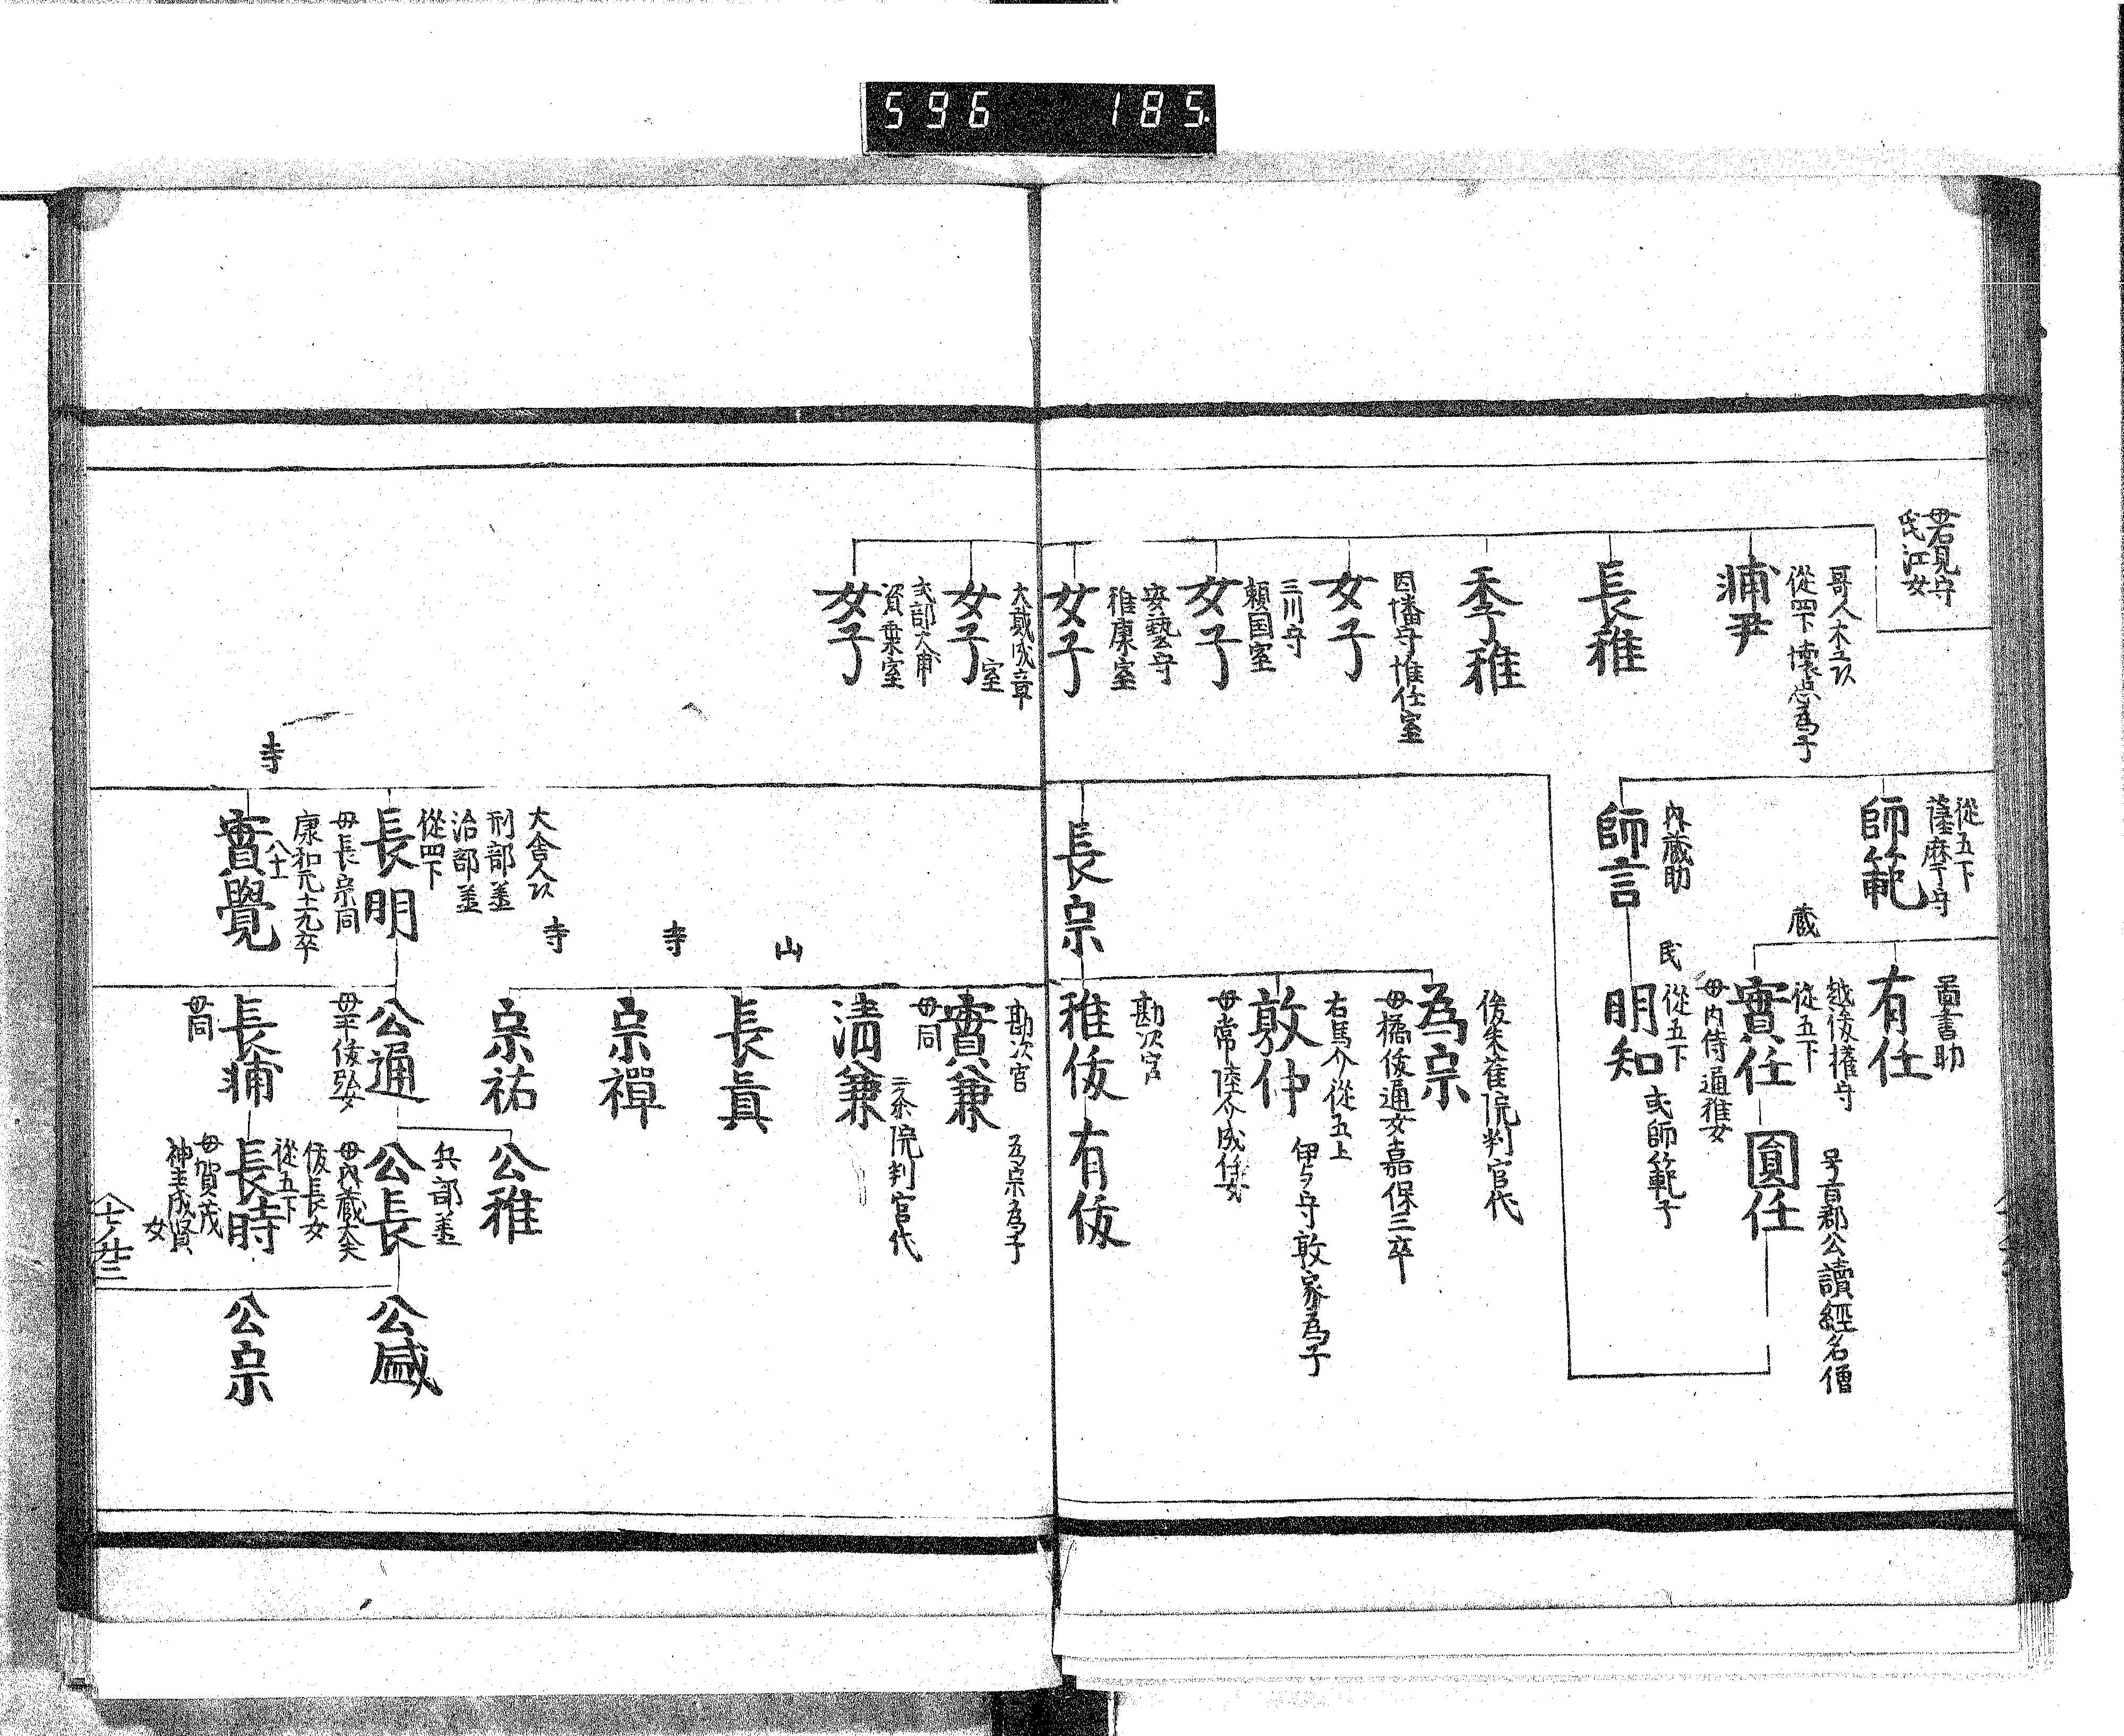 596 185
母若見守
氏江女
従四下懐忠為子
輔尹
長雅
季雅
因幡守惟任室
女子
三川守
頼国室
女子
安藝守
雅康室
女子
大貳成章
室
女子
式部大輔
資業室
女子
従五下
薩摩守
師範
内蔵助
師言
長宗
大舎人头
刑部丞
治部丞
従四下
長明
母長宗同
康和元十十九卒
八十一
寺
實覺
圖書助
有任
蔵
越後権守
従五下
實任
母内侍通雅女
号百郡公讀經名僧
圓任
民
従五下
明知
或師範子
後朱雀院判官代
為宗
母橘俊通女嘉保三卒
右馬介従五上
敦仲
伊与守敦家為子
母常陸介成任女
勘次官
雅俊
有俊
勘次官
為宗為子
實兼
母同
二条院判官代
清兼
山
長真
寺
宗禪
寺
宗祐
公雅
公通
母平俊弘女
兵部丞
公長
母内蔵大夫
俊長女
公盛
長輔
母同
従五下
長時
母賀茂
神主成賢
女
公宗